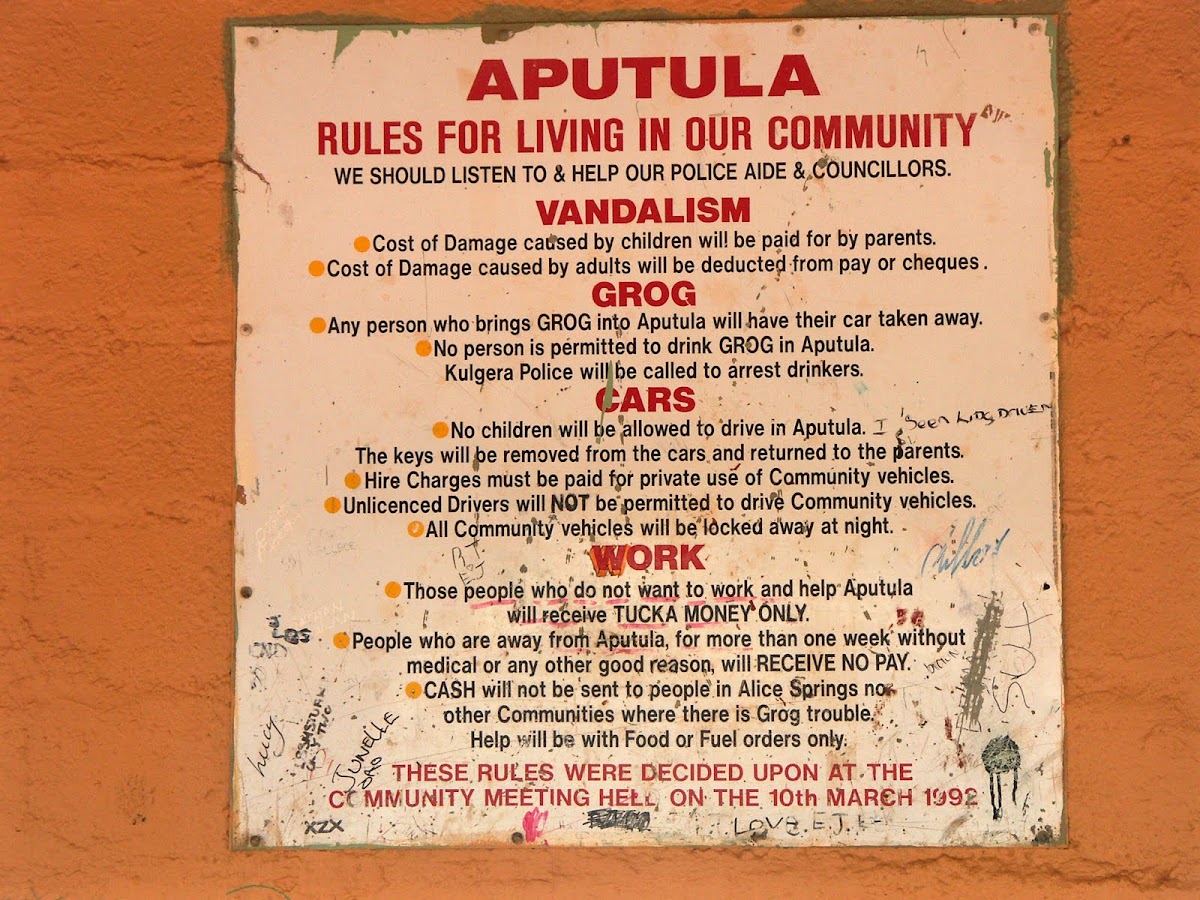 APUTULA
RULES FOR LIVING IN OUR COMMUNITY
WE SHOULD LISTEN TO & HELP OUR POLICE AIDE & COUNCILLORS.
VANDALISM
Cost of Damage caused by children will be paid for by parents.
Cost of Damage caused by adults will be deducted from pay or cheques.
GROG
Any person who brings GROG into Aputula will have their car taken away.
No person is permitted to drink GROG in Aputula.
Kulgera Police will be called to arrest drinkers.
CARS
No children will be allowed to drive in Aputula. I Seen KIDS DRIVEN
The keys will be removed from the cars and returned to the parents.
Hire Charges must be paid for private use of Community vehicles.
Unlicenced Drivers will NOT be permitted to drive Community vehicles.
All Community vehicles will be locked away at night.
WORK
Those people who do not want to work and help Aputula
will receive TUCKA MONEY ONLY.
People who are away from Aputula, for more than one week without
medical or any other good reason, will RECEIVE NO PAY.
CASH will not be sent to people in Alice Springs no
other Communities where there is Grog trouble.
Help will be with Food or Fuel orders only.
lucy
JUNELLE
THESE RULES WERE DECIDED UPON AT THE
COMMUNITY MEETING HELL ON THE 10th MARCH 1992
XZX
LOVE E.J.L